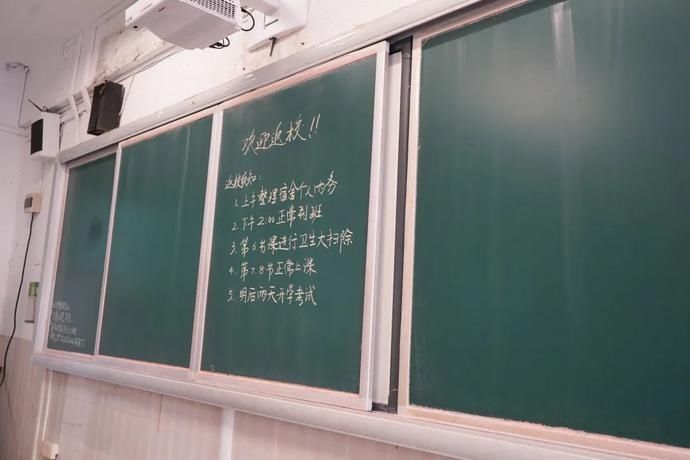 欢迎返校!!
返校须知:
1. 上午整理宿舍个人内务
2. 下午2:00正常到班
3. 第6节课进行卫生大扫除
4. 第7.8节正常上课
5. 明后两天开学考试